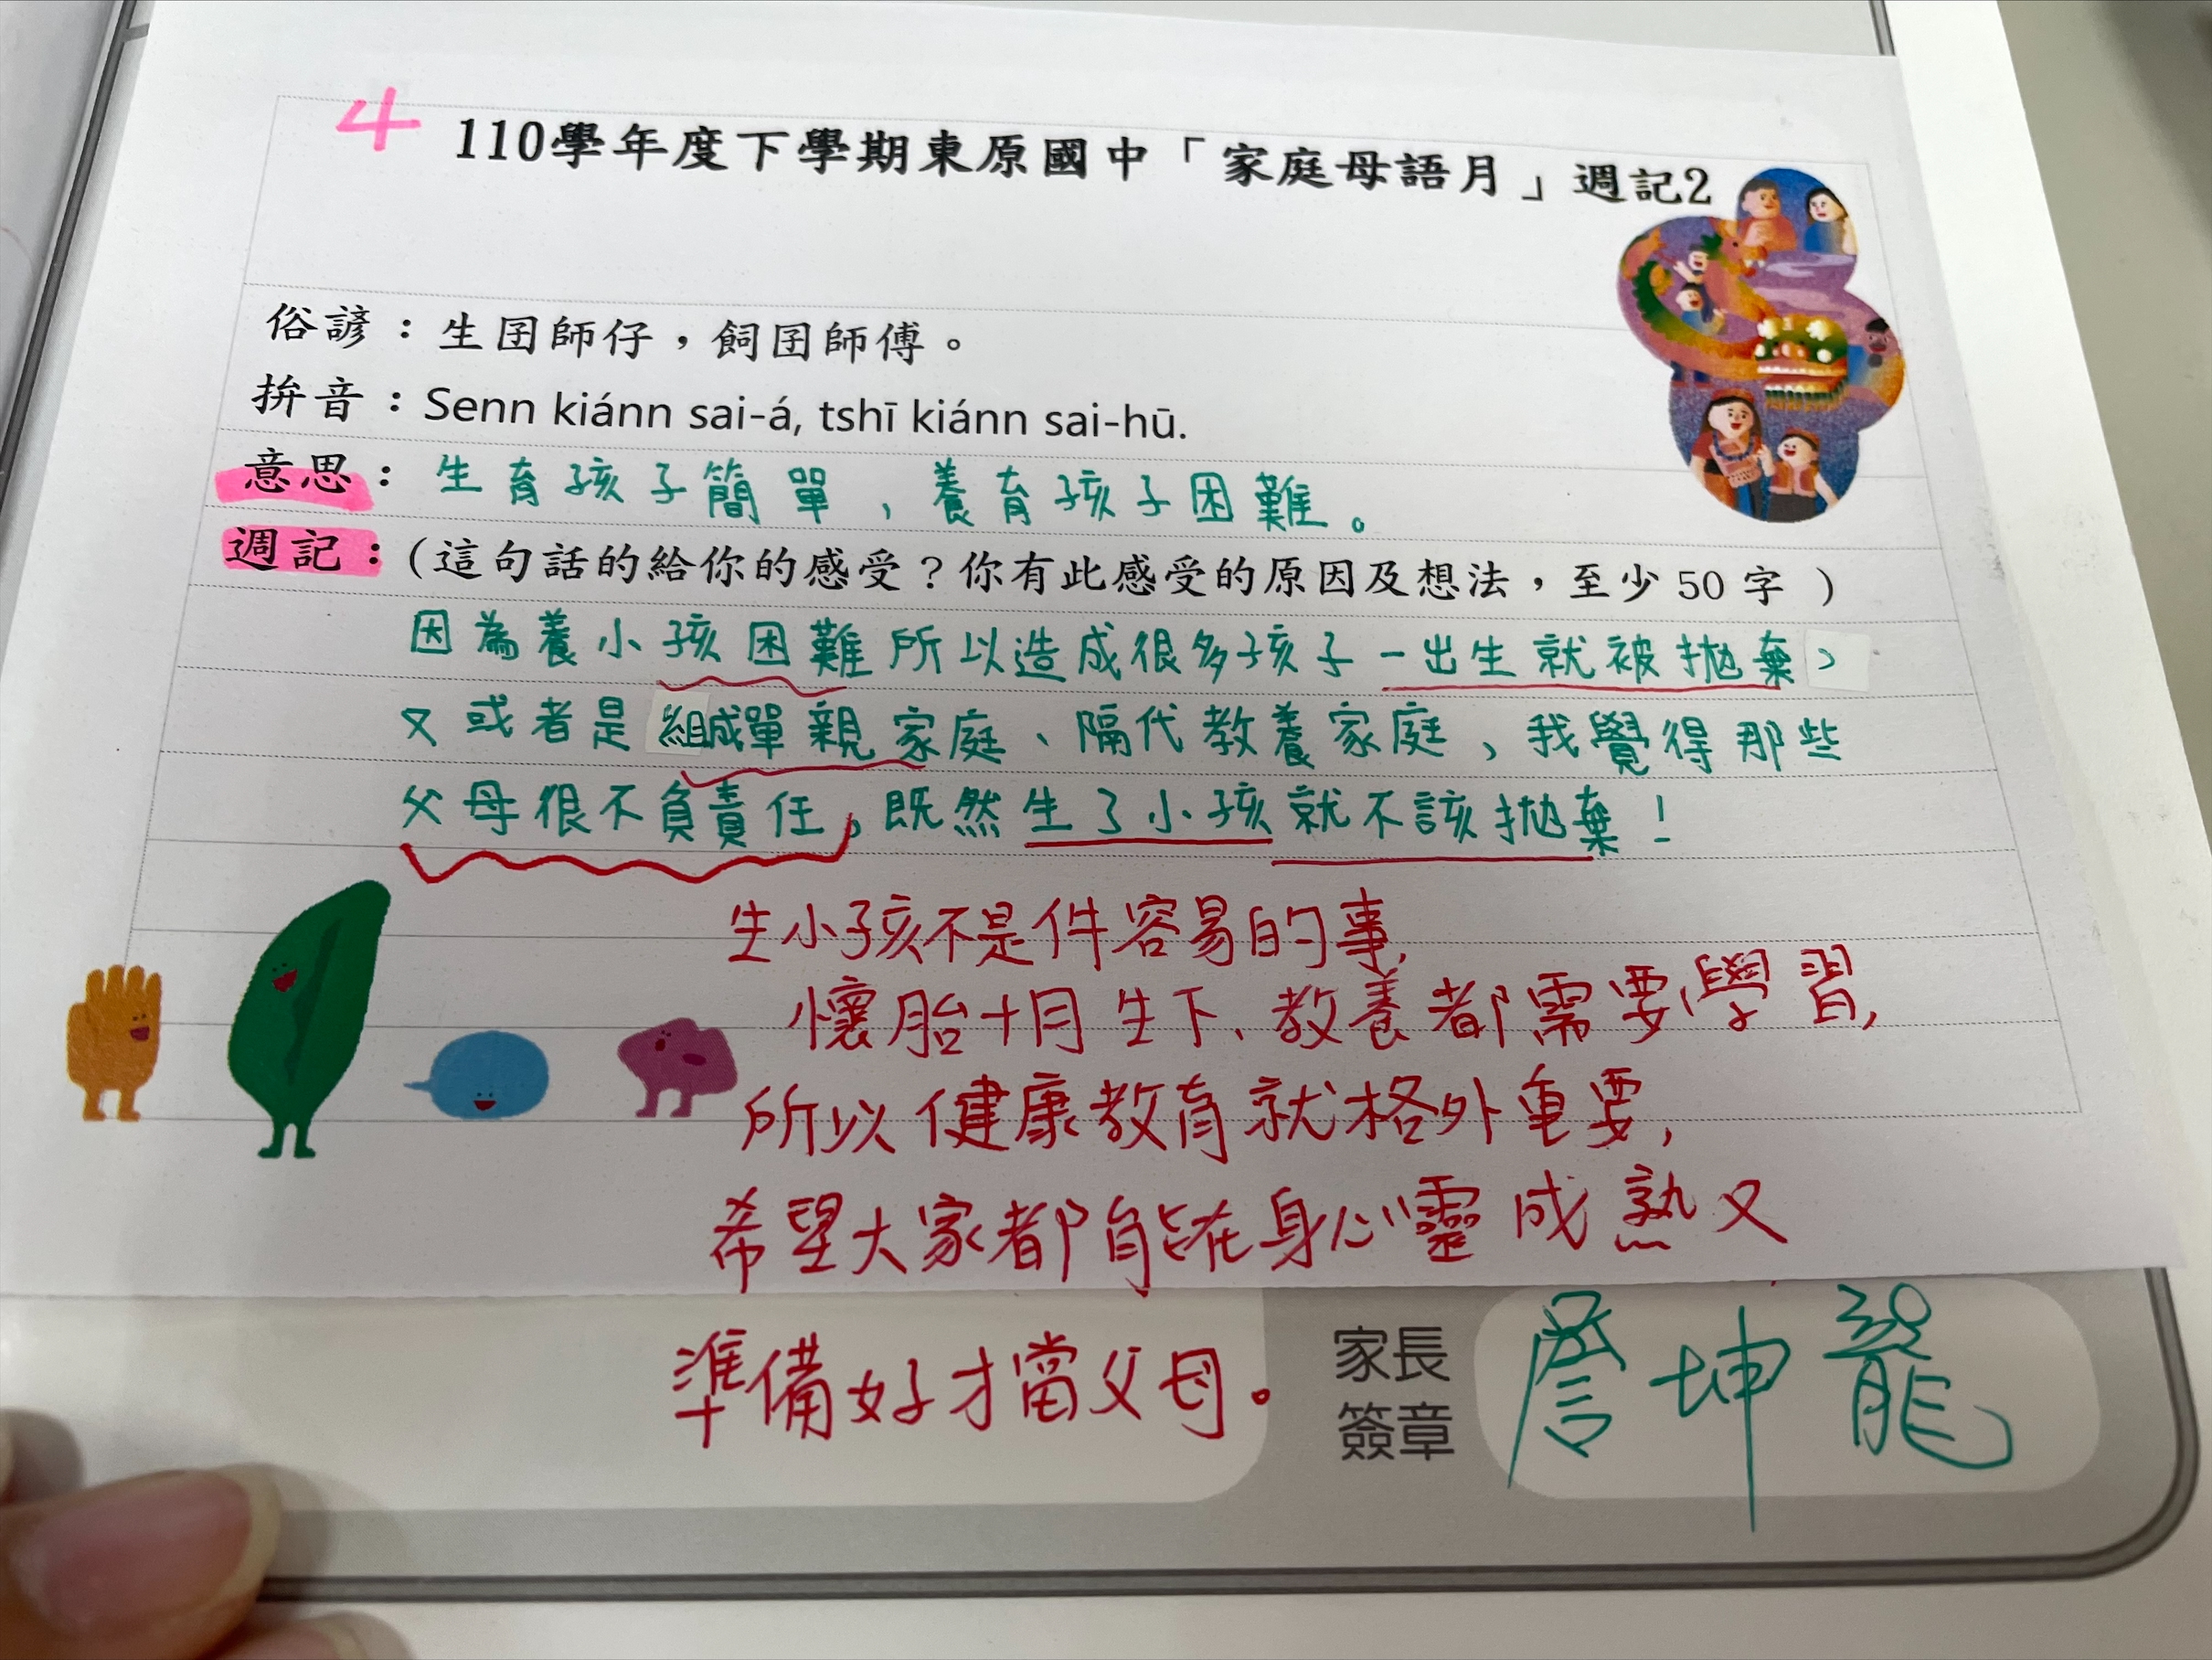 4
110學年度下學期東原國中「家庭母語月」週記2
俗諺：生囝師仔，飼囝師傅。
拚音：Senn kiánn sai-á, tshī kiánn sai-hū.
意思：生育孩子簡單，養育孩子困難。
週記：(這句話的給你的感受？你有此感受的原因及想法，至少50字 )
因為養小孩困難所以造成很多孩子一出生就被拋棄、
又或者是組成單親家庭、隔代教養家庭，我覺得那些
父母很不負責任，既然生了小孩就不該拋棄！
生小孩不是件容易的事，
懷胎十月生下、教養都需要學習，
所以健康教育就格外重要，
希望大家都能在身心靈成熟又
準備好才當父母。
家長
簽章
詹坤龍